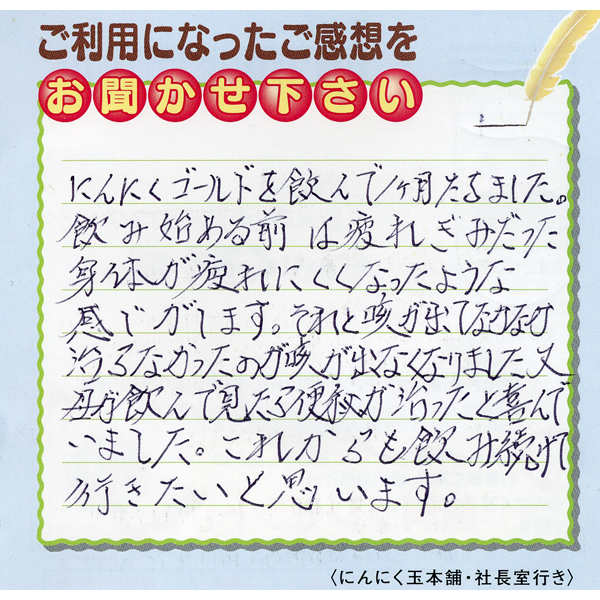 ご利用になったご感想を
お聞かせ下さい
にんにくゴールドを飲んで1ヶ月たちました。
飲み始める前は疲れぎみだった
身体が疲れにくくなったような
感じがします。それと咳が出てなかなか
治らなかったのが咳が出なくなりました又
母が飲んで見たら便秘が治ったと喜んで
いました。これからも飲み続けて
行きたいと思います。
〈にんにく玉本舗・社長室行き〉